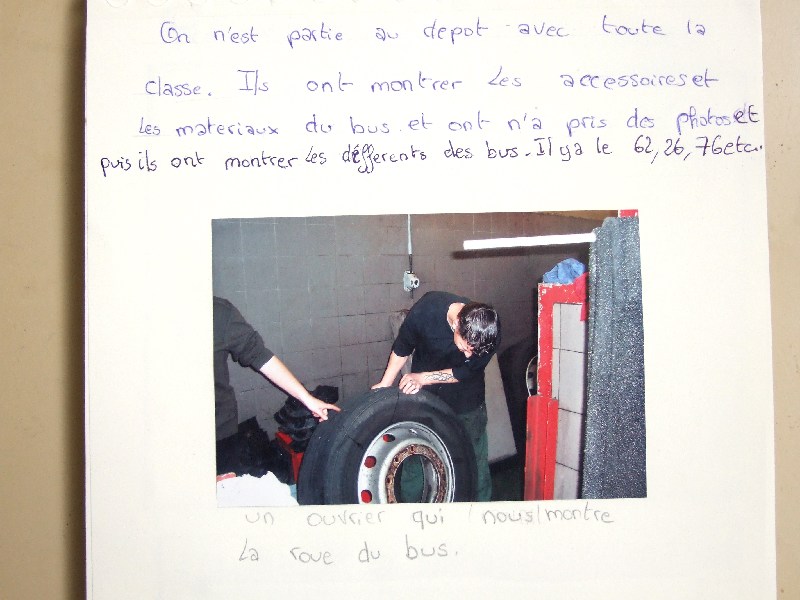 On n'est partie au depot avec toute la
classe. Ils ont montrer les accessoires et
les materiaux du bus. et ont n'a pris des photos et
puis ils ont montrer les différents des bus. Il ya le 62, 26, 76 etc.
un ouvrier qui nous montre
la roue du bus.